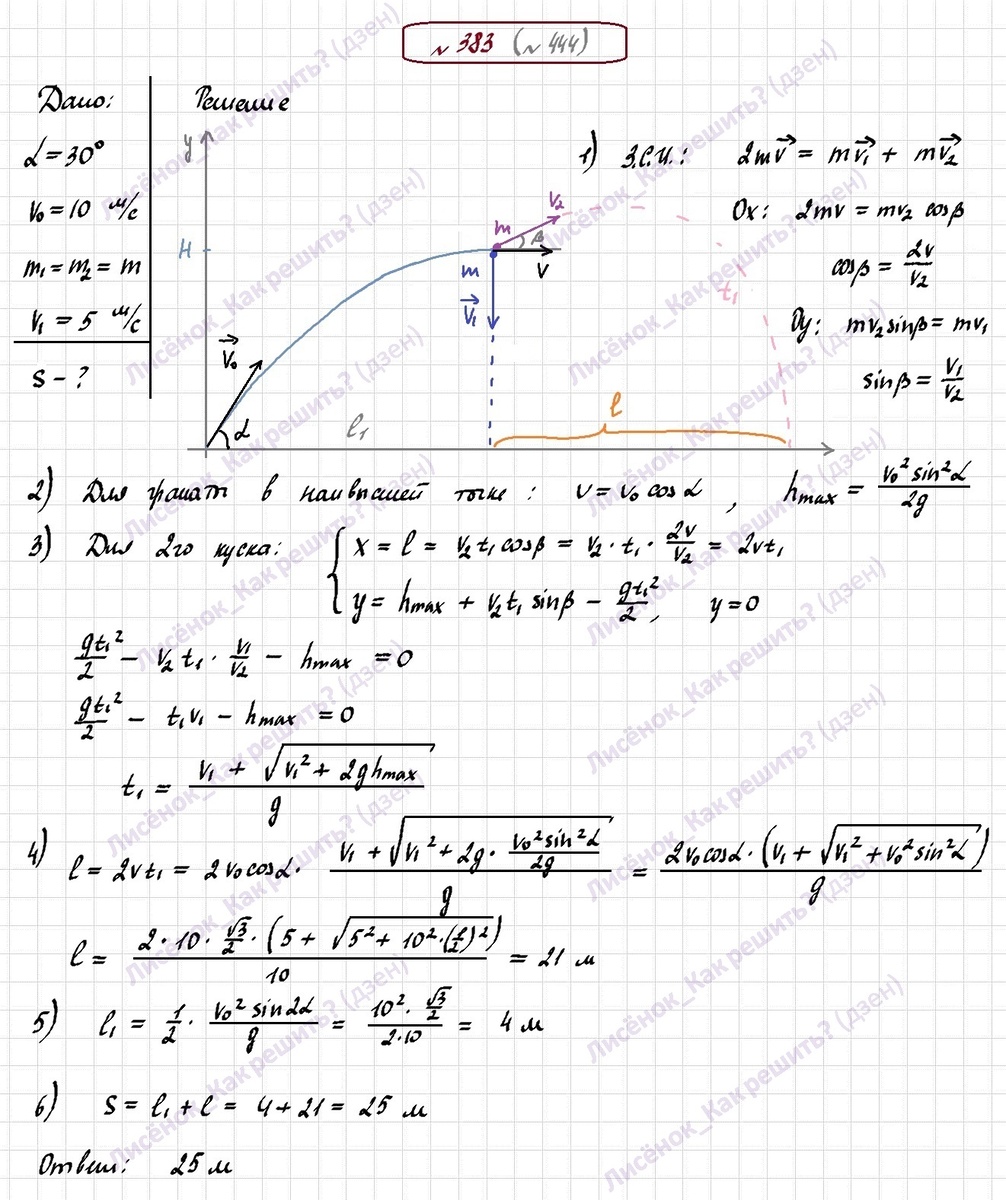 № 383 (№ 444)
Дано:
Решение
α = 30°
V₀ = 10 м/с
m₁ = m₂ = m
V₁ = 5 м/с
S – ?
y
H
V₀
α
l₁
m
V₂
β
m
V
V₁
t₁
l
1) З.С.И.: 2mv⃗ = mv⃗₁ + mv⃗₂
Ox: 2mv = mv₂ cosβ
cosβ = 2v/v₂
Oy: mv₂sinβ = mv₁
sinβ = v₁/v₂
2) Для гранаты в наивысшей точке: v = v₀ cosα, hmax = v₀² sin²α / 2g
3) Для 2го куска: { x = l = v₂t₁cosβ = v₂·t₁·2v/v₂ = 2vt₁
y = hmax + v₂t₁ sinβ – gt₁²/2, y=0
gt₁²/2 – v₂t₁·v₁/v₂ – hmax = 0
gt₁²/2 – t₁v₁ – hmax = 0
t₁ = (v₁ + √(v₁² + 2ghmax)) / g
4) l = 2vt₁ = 2v₀cosα · (v₁ + √(v₁² + 2g · v₀²sin²α/2g)) / g = 2v₀cosα · (v₁ + √(v₁² + v₀²sin²α)) / g
l = 2·10·√3/2·(5 + √(5² + 10²·(1/2)²)) / 10 = 21 м
5) l₁ = 1/2 · v₀² sin2α / g = 10² · √3/2 / 2·10 = 4 м
6) S = l₁ + l = 4 + 21 = 25 м
Ответ: 25 м
Лисёнок_Как решить? (дзен)